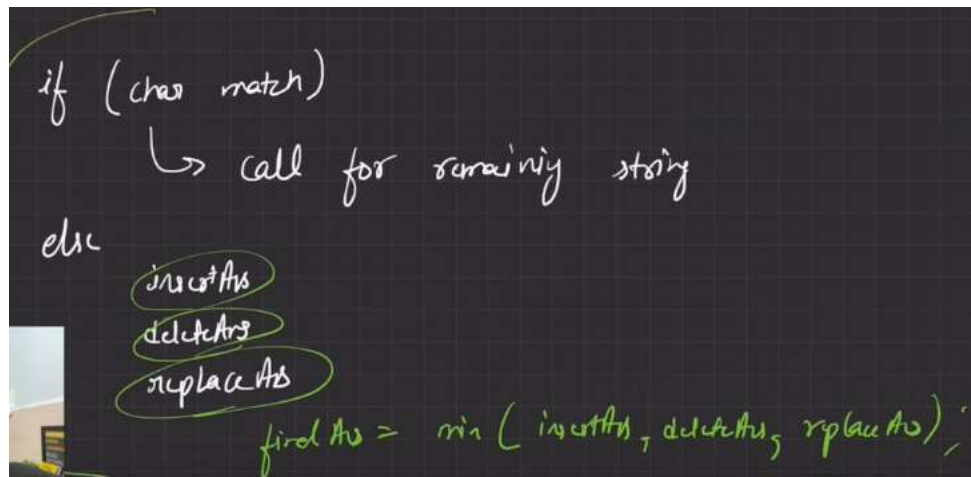 if (char match)
↳ call for remainiy string
else
insertAns
deleteAns
replaceAns
finalAns = min ( insertAns, deleteAns, replaceAns);